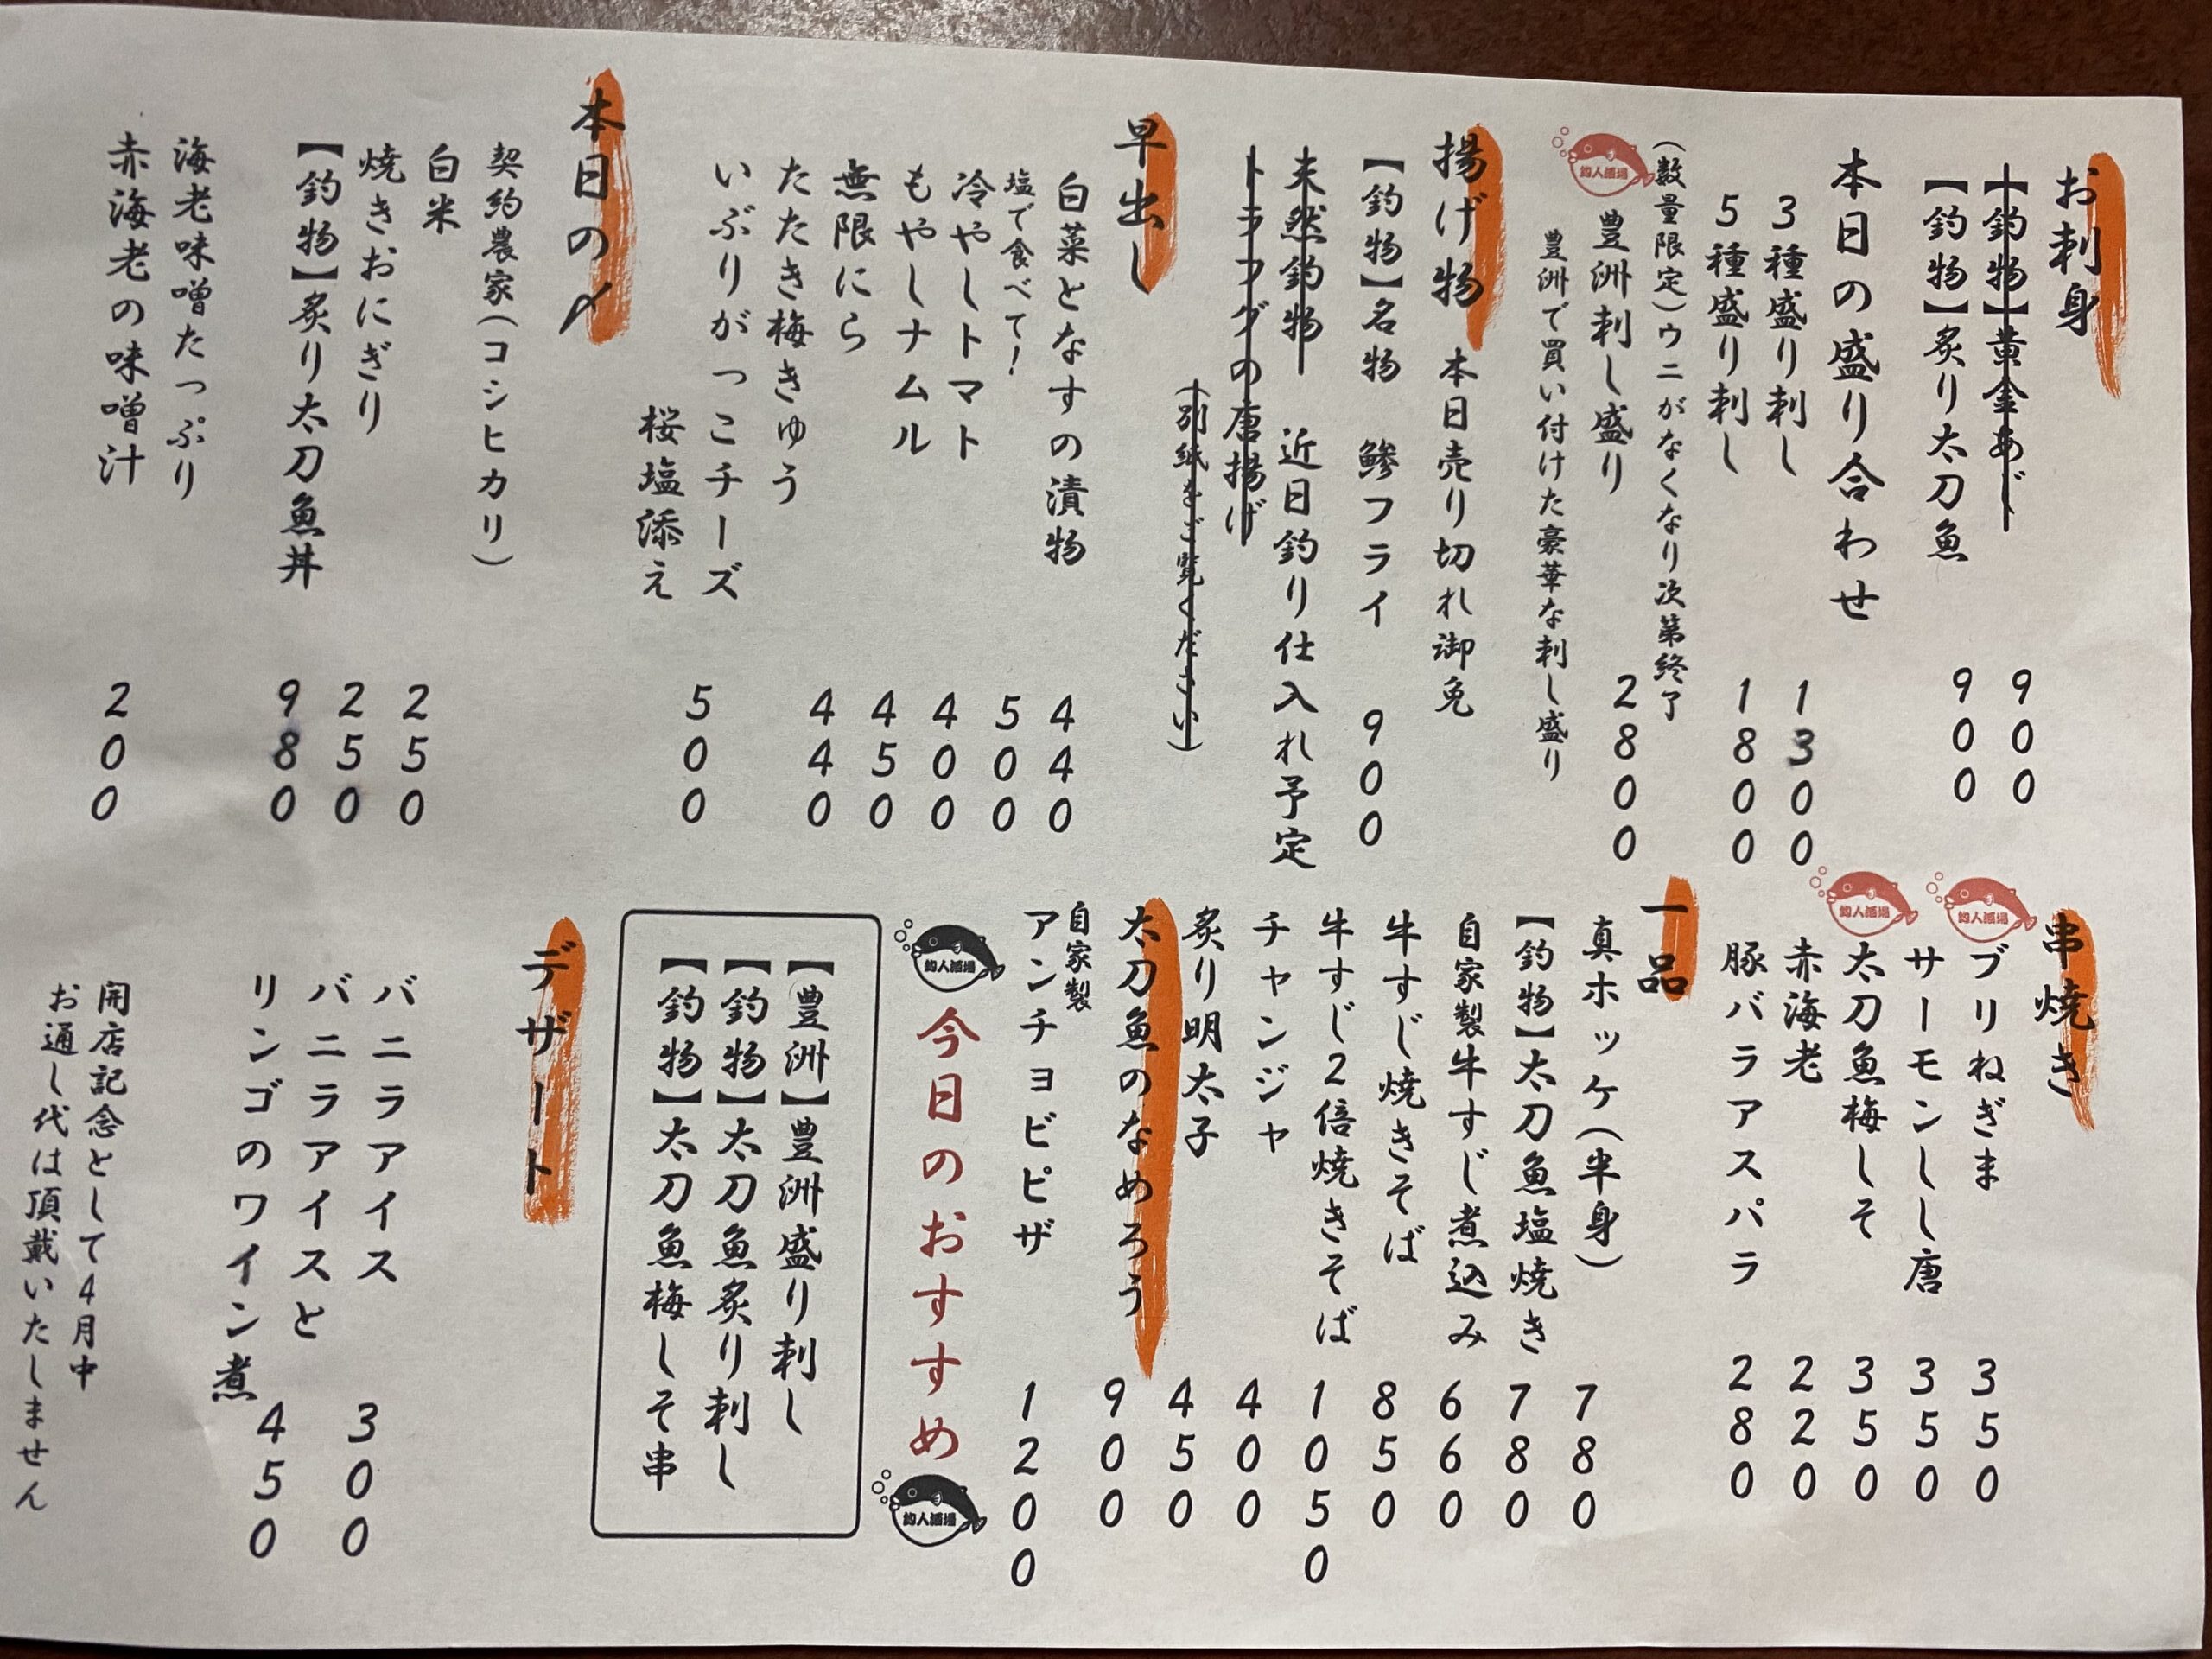 お刺身
【釣物】黄金あじ 900
【釣物】炙り太刀魚 900
本日の盛り合わせ
3種盛り刺し 1300
5種盛り刺し 1800
(数量限定)ウニがなくなり次第終了
釣人酒場
豊洲刺し盛り 2800
豊洲で買い付けた豪華な刺し盛り
揚げ物 本日売り切れ御免
【釣物】名物 鯵フライ 900
天然釣物 近日釣り仕入れ予定
トラフグの唐揚げ
(別紙をご覧ください)
早出し
白菜となすの漬物 440
塩で食べて!
冷やしトマト 500
もやしナムル 400
無限にら 450
たたき梅きゅう 440
いぶりがっこチーズ
桜塩添え 500
本日の〆
契約農家(コシヒカリ)
白米 250
焼きおにぎり 250
【釣物】炙り太刀魚丼 980
海老味噌たっぷり
赤海老の味噌汁 200
串焼き
釣人酒場
ブリねぎま 350
サーモンしし唐 350
釣人酒場
太刀魚梅しそ 350
赤海老 220
豚バラアスパラ 280
一品
真ホッケ(半身) 780
【釣物】太刀魚塩焼き 780
自家製牛すじ煮込み 660
牛すじ焼きそば 850
牛すじ2倍焼きそば 1050
チャンジャ 400
炙り明太子 450
太刀魚のなめろう 900
自家製
アンチョビピザ 1200
釣人酒場
今日のおすすめ
釣人酒場
【豊洲】豊洲盛り刺し
【釣物】太刀魚炙り刺し
【釣物】太刀魚梅しそ串
デザート
バニラアイス 300
バニラアイスと
リンゴのワイン煮 450
開店記念として4月中
お通し代は頂戴いたしません